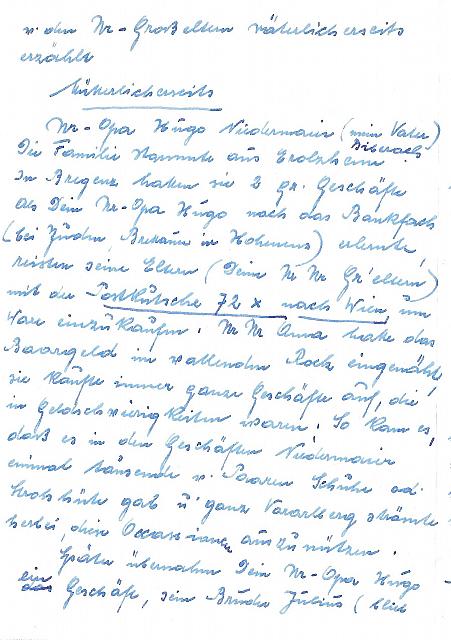 v. den Ur-Großeltern väterlicherseits
erzählt
Mütterlicherseits
Ur-Opa Hugo Niedermair (mein Vater)
Die Familie stammte aus Erolzheim
Biberach
In Bregenz hatten sie 2 gr. Geschäfte
als Dein Ur-Opa Hugo noch das Bankfach
(bei Juden, in Hohenems) erlernte,
reisten seine Eltern (Deine Ur Ur Gr'eltern)
mit der Postkutsche 72 x nach Wien, um
Ware einzukaufen. Ur Ur Anna hatte das
Baargeld im wallenden Rock eingenäht,
sie kaufte immer ganze Geschäfte auf, die
in Geldschwierigkeiten waren. So kam es,
daß es in den Geschäften Niedermair
einmal tausende v. Paaren Schuhe od.
Strohhüte gab u' ganz Vorarlberg strömte
herbei, diese Occasionen auszunützen.
Später übernahm Dein Ur-Opa Hugo
ein
das Geschäft, sein Bruder Julius (blieb